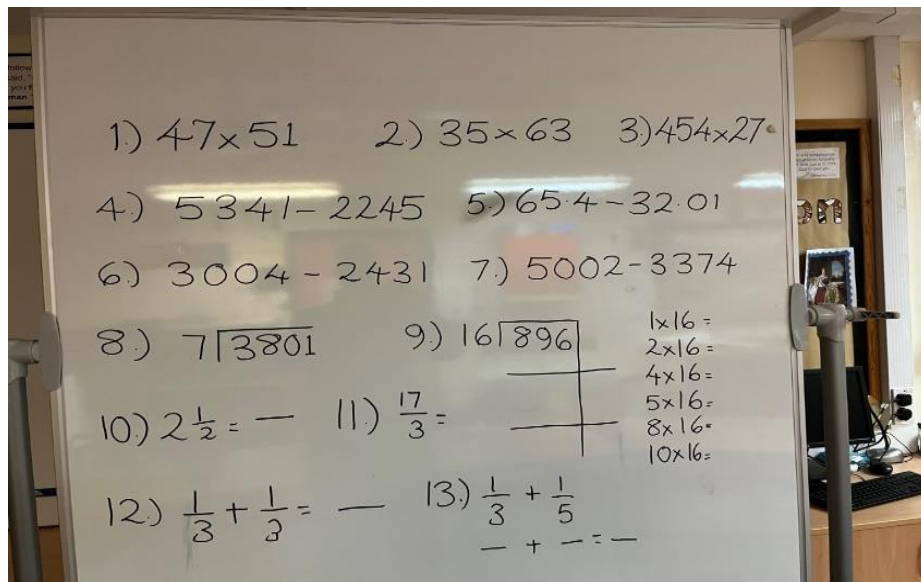 1.) 47×51 2.) 35×63 3.) 454×27
4.) 5341-2245 5.) 65.4-32.01
6.) 3004-2431 7.) 5002-3374
8.) 7⟌3801 9.) 16⟌896
1×16=
2×16=
4×16=
5×16=
8×16=
10×16=
10.) 2 1/2 = — 11.) 17/3 =
12.) 1/3 + 1/3 = — 13.) 1/3 + 1/5
— + — = —